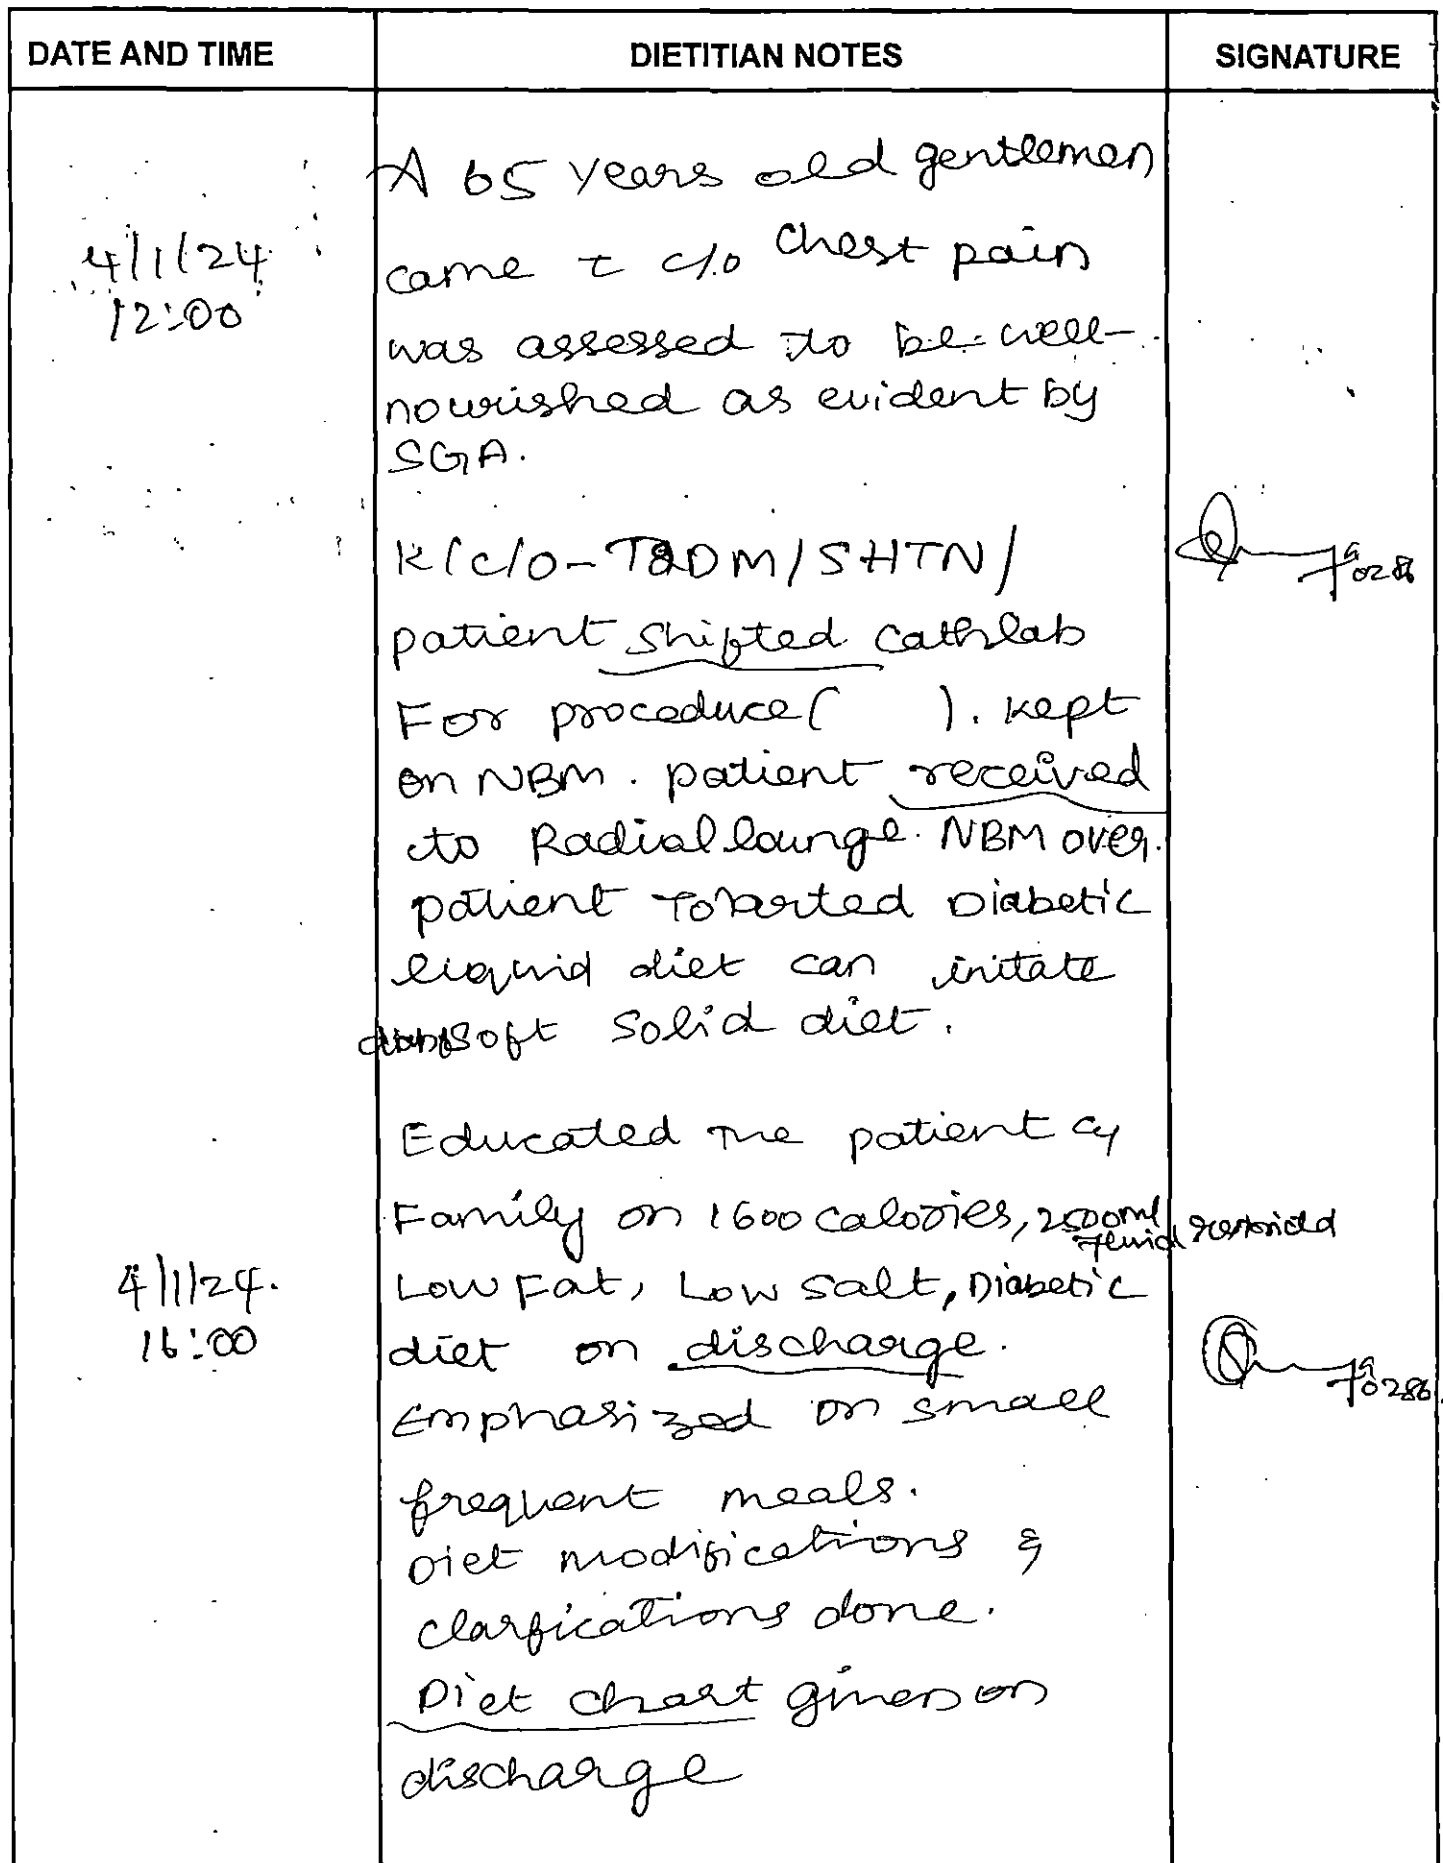 DATE AND TIME DIETITIAN NOTES SIGNATURE
A 65 years old gentleman
4/1/24 came c c/o Chest pain
12:00
was assessed to be well-
nourished as evident by
SGA.
K/c/o - T2DM/SHTN/
patient shifted cathlab
For procedure( ). kept
on NBM. patient received
to Radial lounge. NBM over.
patient Diabetic
liquid diet can initate
soft solid diet.
Educated the patient
Family on 1600 calories, 2500ml
Fluid
4/1/24. Low Fat, Low salt, Diabetic
16:00 diet on discharge.
Emphasized on small
frequent meals.
Diet modifications &
clarfications done.
Diet chart given on
discharge